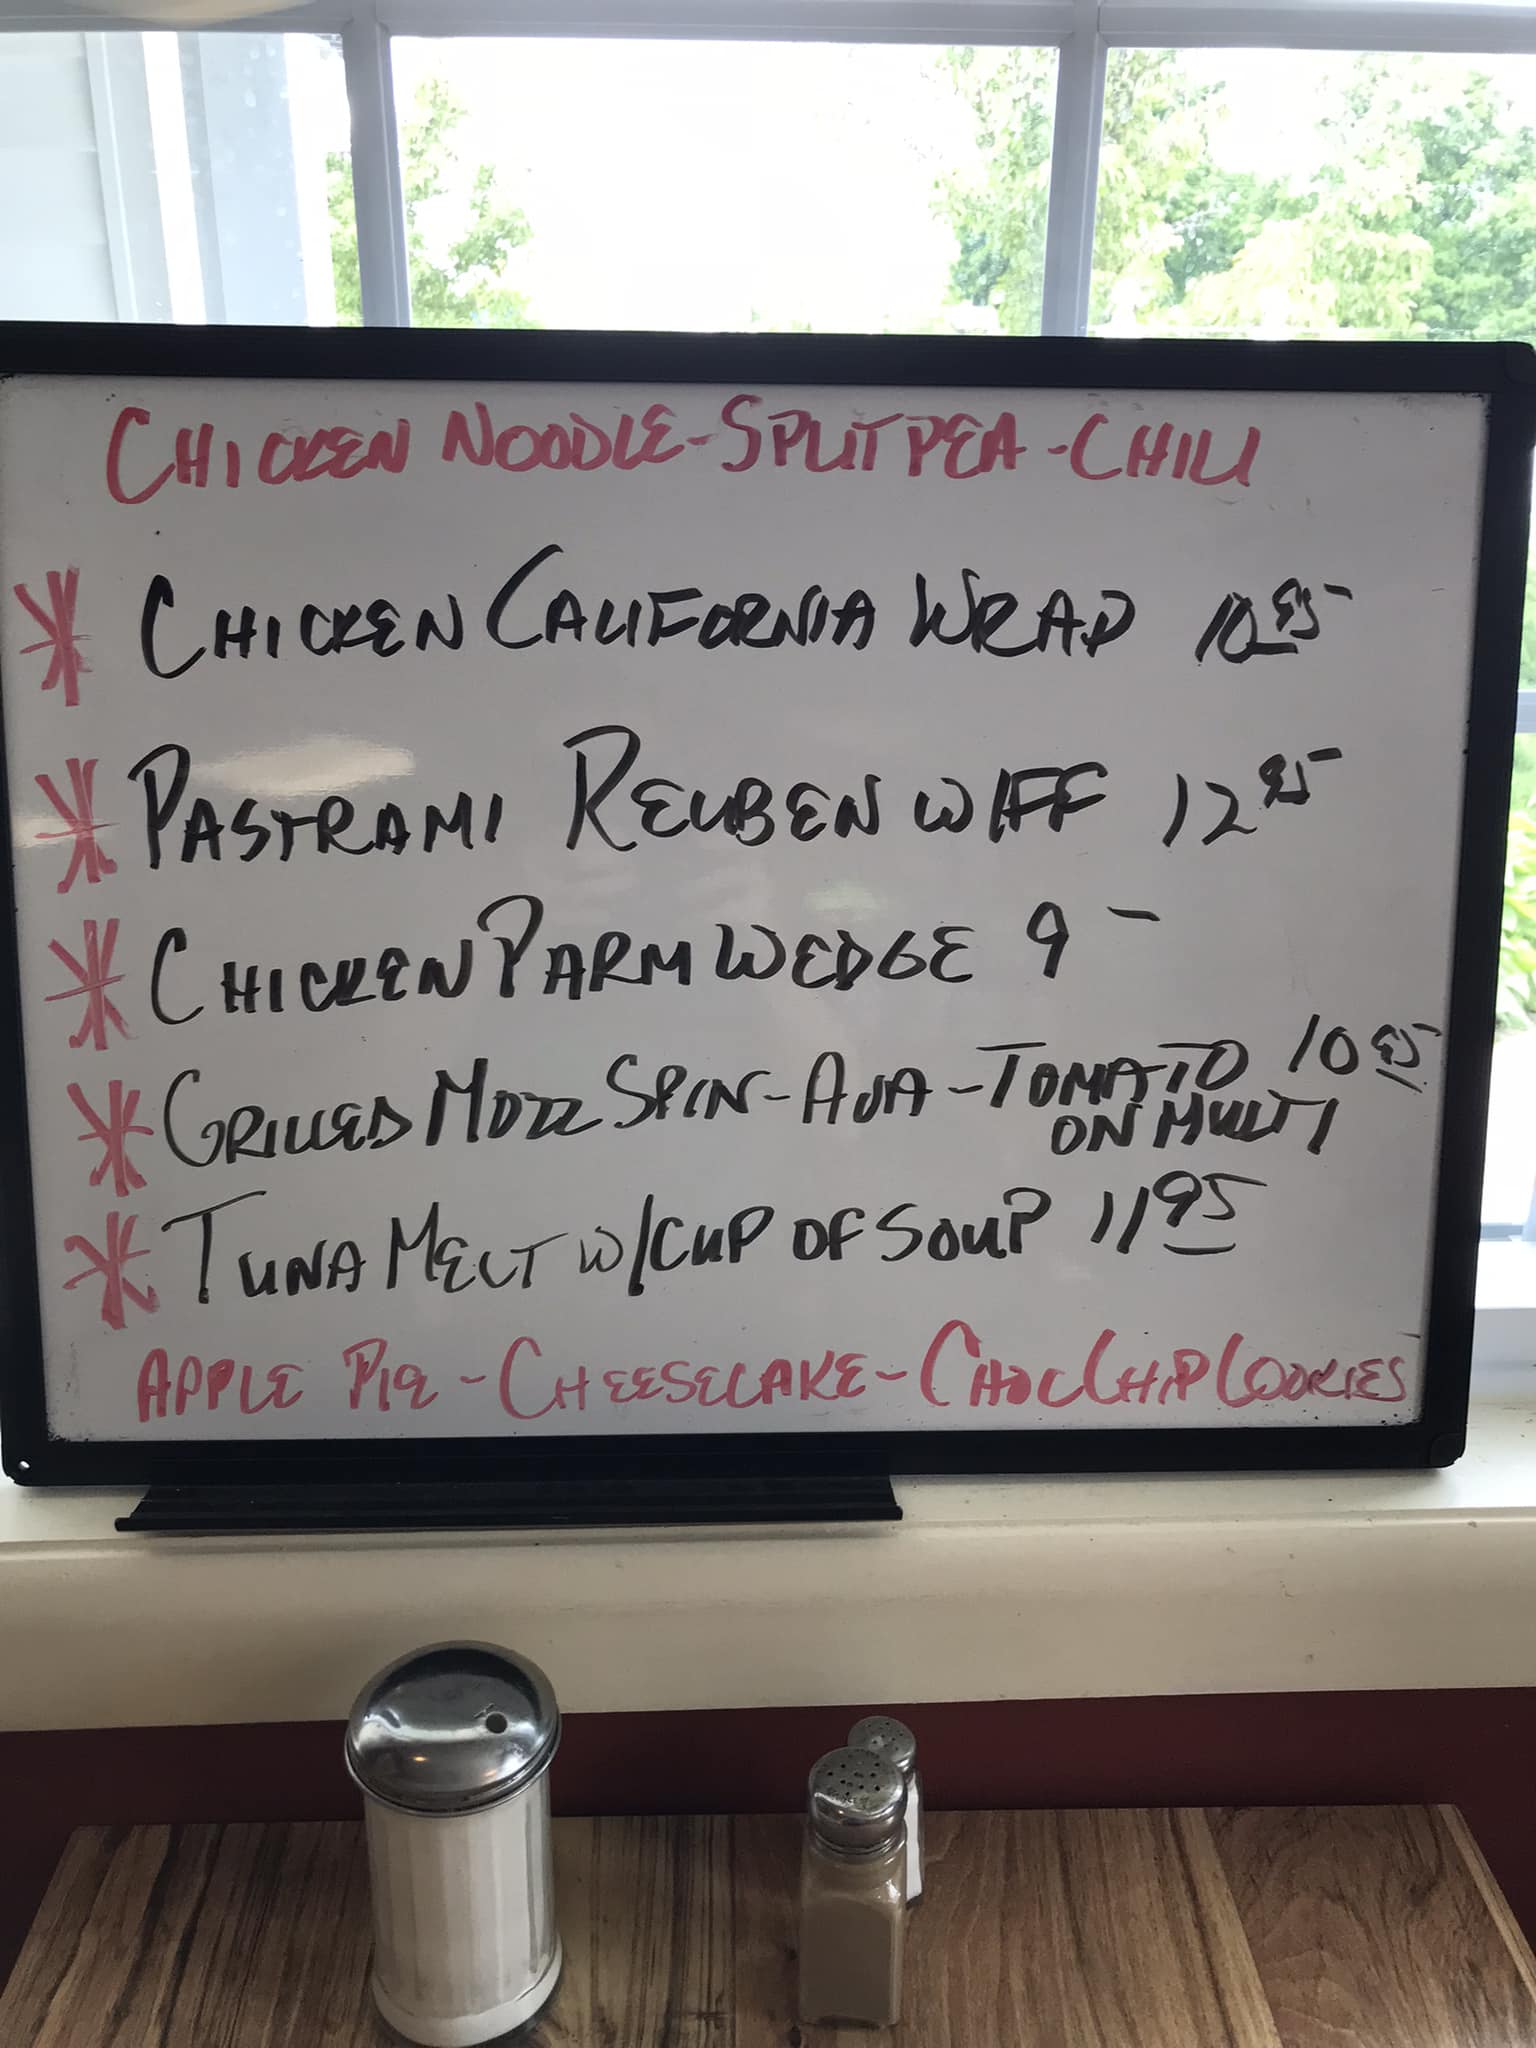 CHICKEN NOODLE-SPLIT PEA-CHILI
* CHICKEN CALIFORNIA WRAP 10 95
* PASTRAMI REUBEN W/FF 12 95
* CHICKEN PARM WEDGE 9 -
* GRILLED MOZZ SPIN-AVA-TOMATO 10 95
ON MULTI
* TUNA MELT W/CUP OF SOUP 11 95
APPLE PIE-CHEESECAKE-CHOC CHIP COOKIES